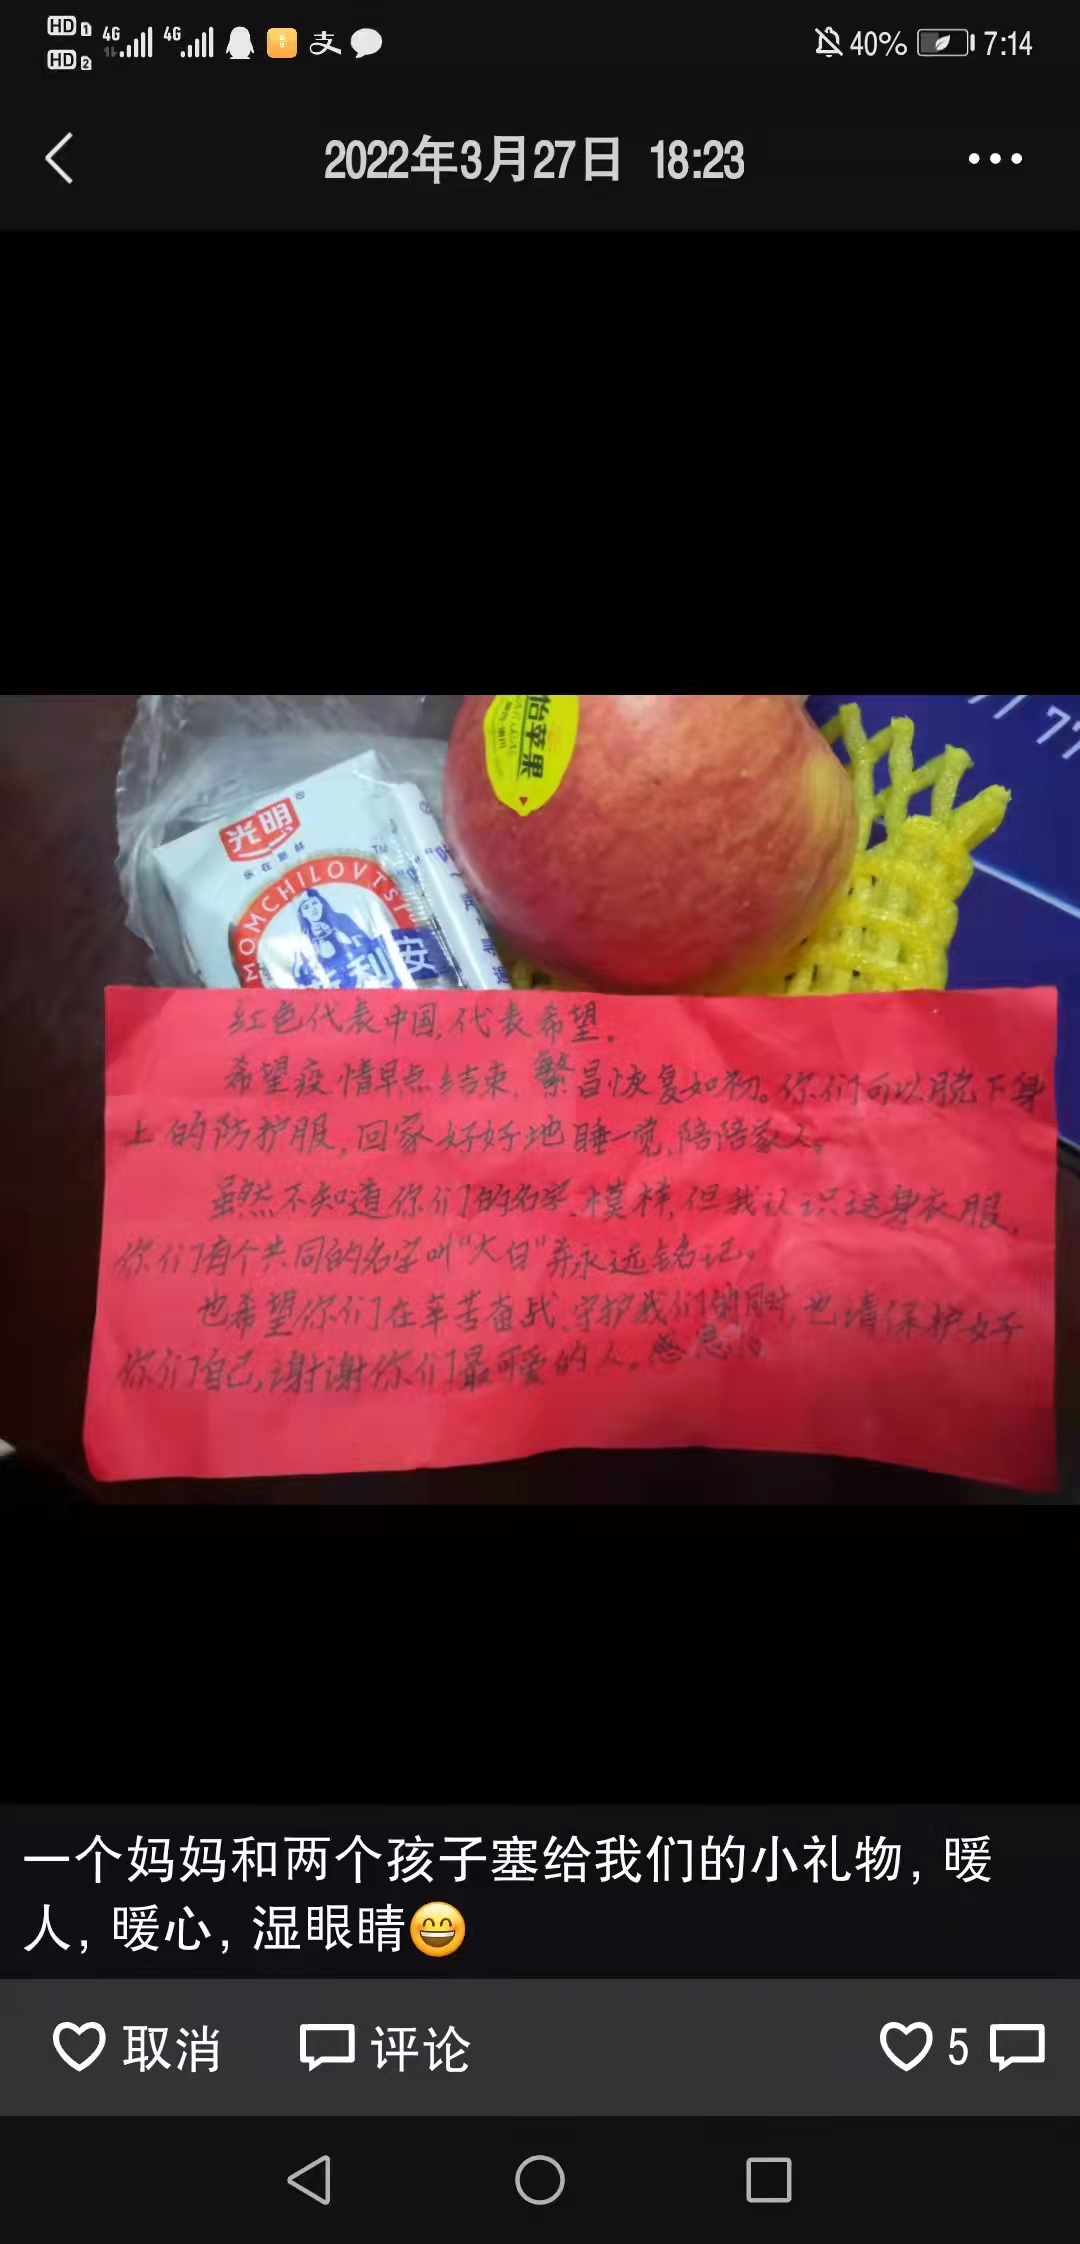 HD 1 4G 4G 40% 7:14
HD 2
2022年3月27日 18:23
怡苹果
77 77
光明
TM
MOMCHILOVTSI
利安
红色代表中国,代表希望。
希望疫情早点结束,繁昌恢复如初。你们可以脱下身
上的防护服,回家好好地睡一觉,陪陪家人。
虽然不知道你们的名字、模样,但我认识这身衣服,
你们有个共同的名字叫“大白”并永远铭记。
也希望你们在辛苦奋战、守护我们的同时,也请保护好
你们自己,谢谢你们最可爱的人。感恩
一个妈妈和两个孩子塞给我们的小礼物,暖
人,暖心,湿眼睛😄
取消 评论 5